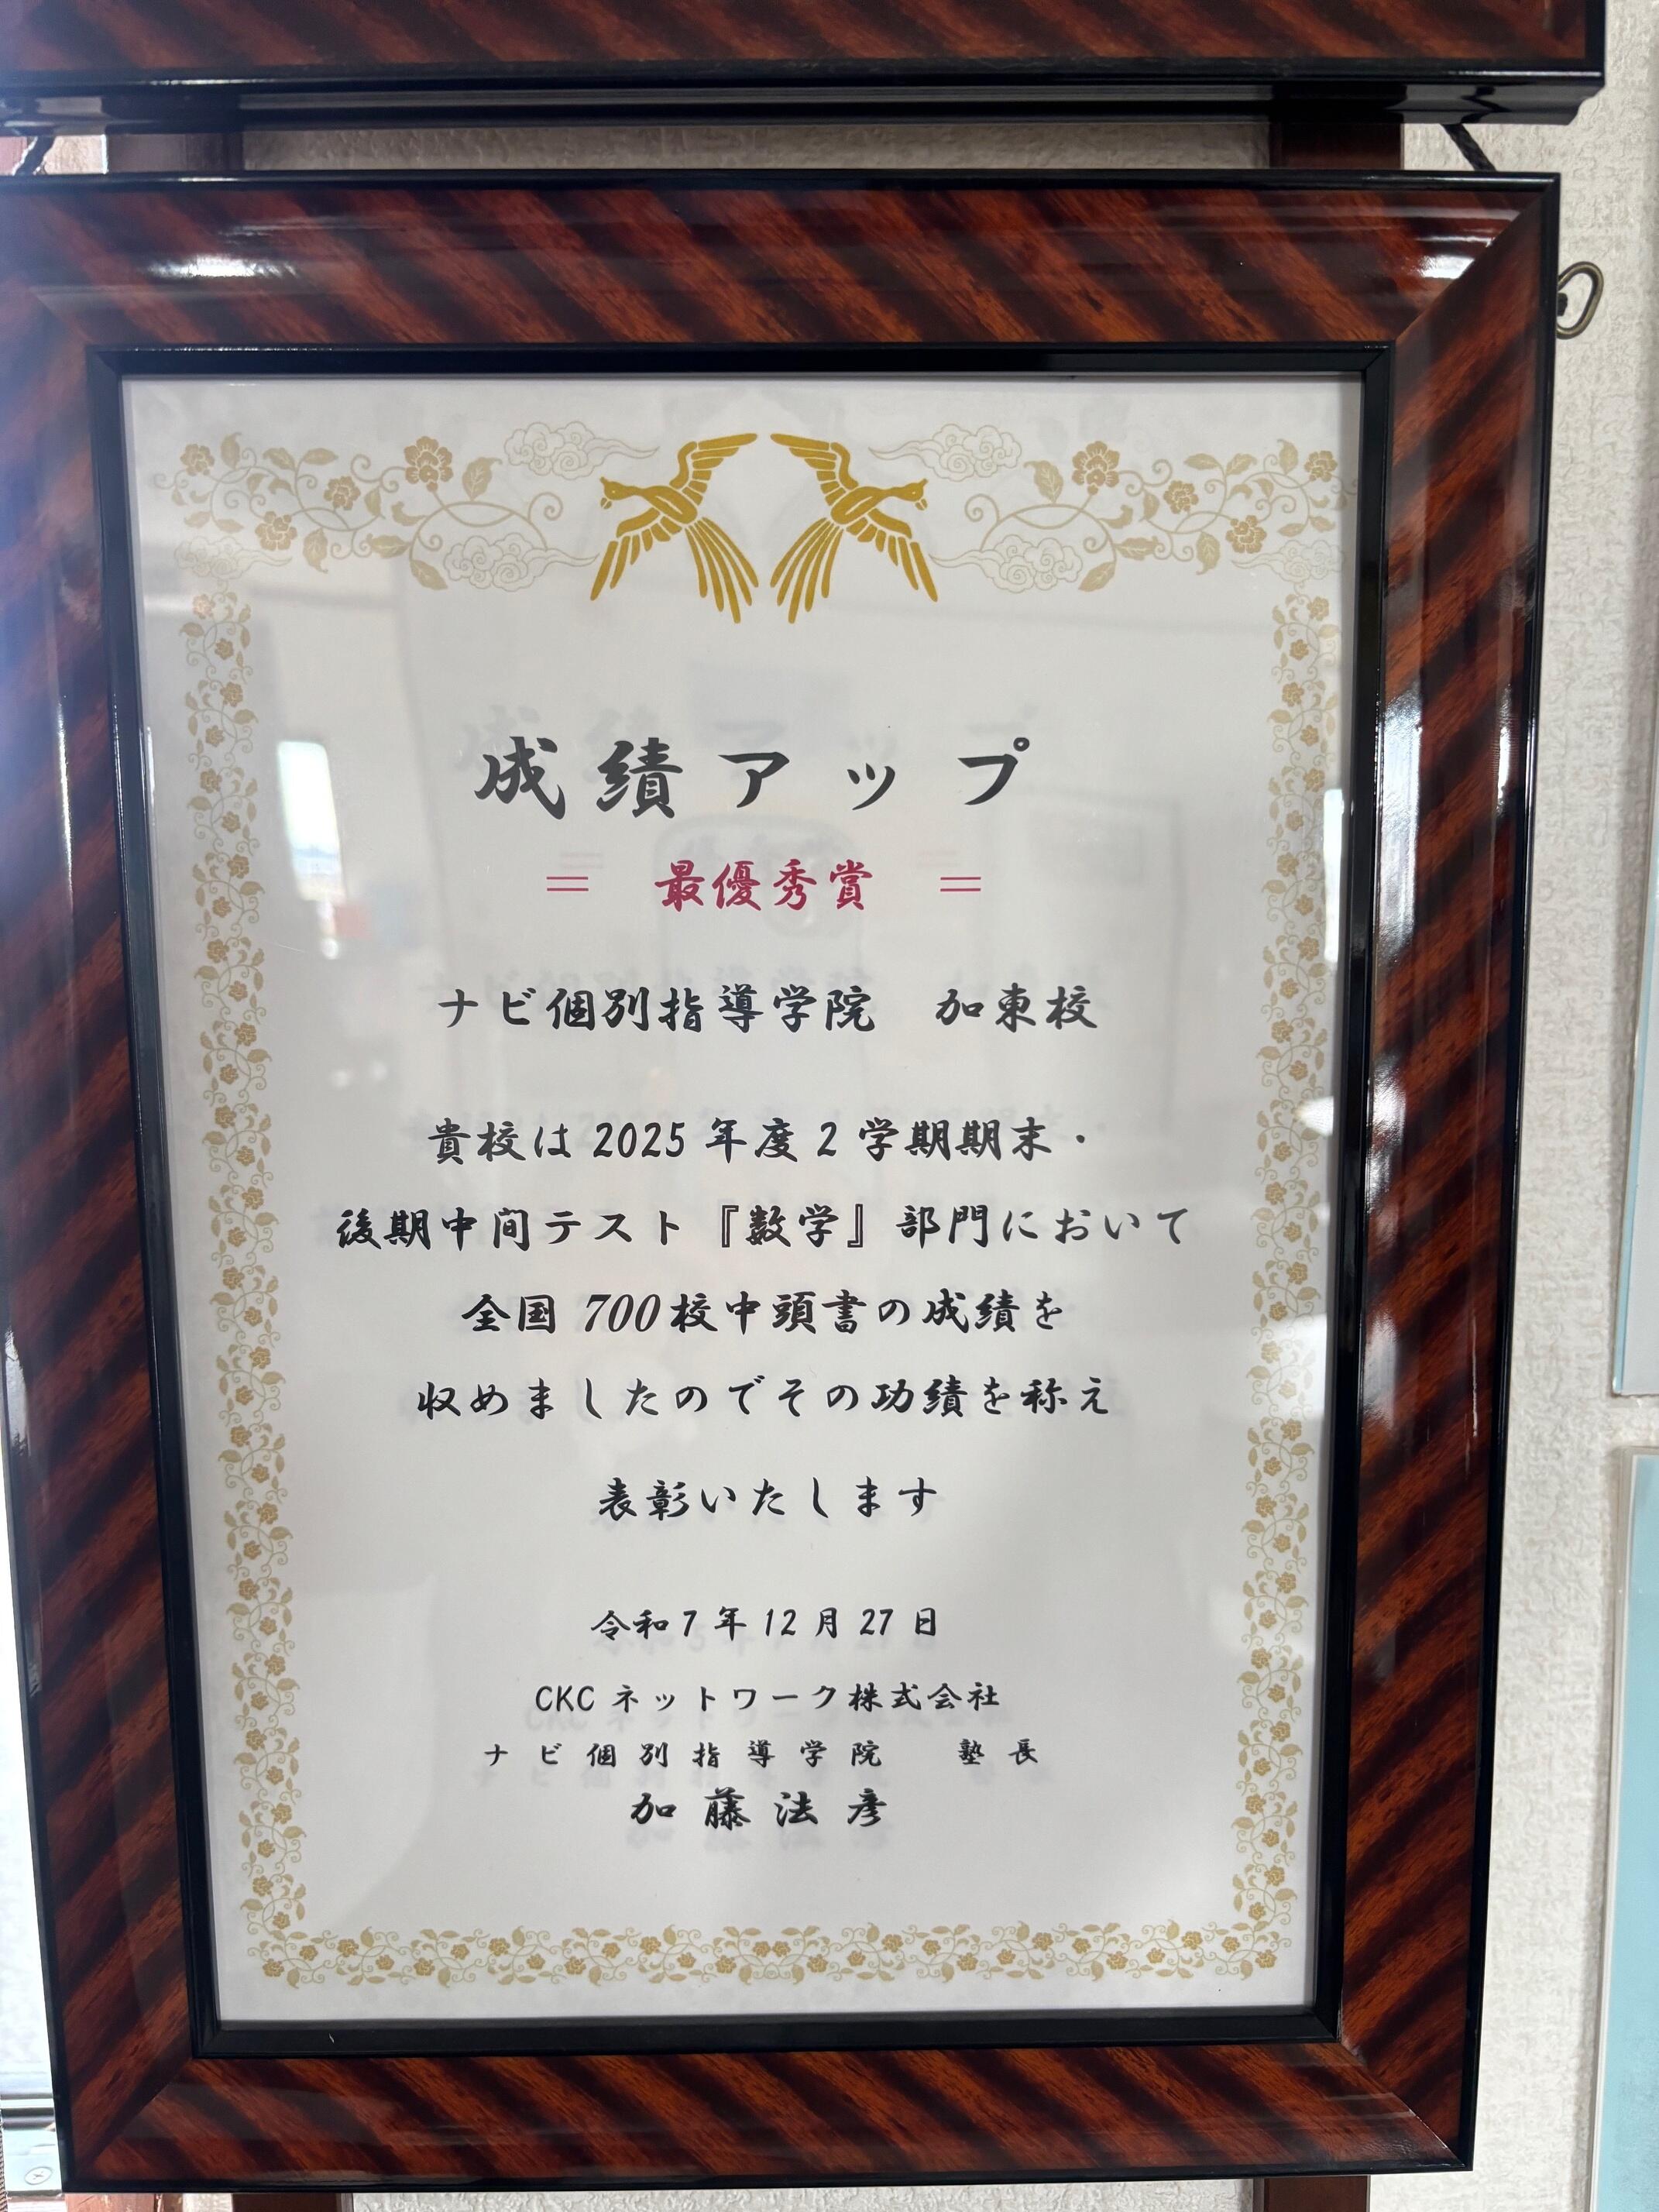 成績アップ
＝ 最優秀賞 ＝
ナビ個別指導学院 加東校
貴校は2025年度2学期期末・
後期中間テスト『数学』部門において
全国700校中頭書の成績を
収めましたのでその功績を称え
表彰いたします
令和7年12月27日
CKCネットワーク株式会社
ナビ個別指導学院 塾長
加藤法彦